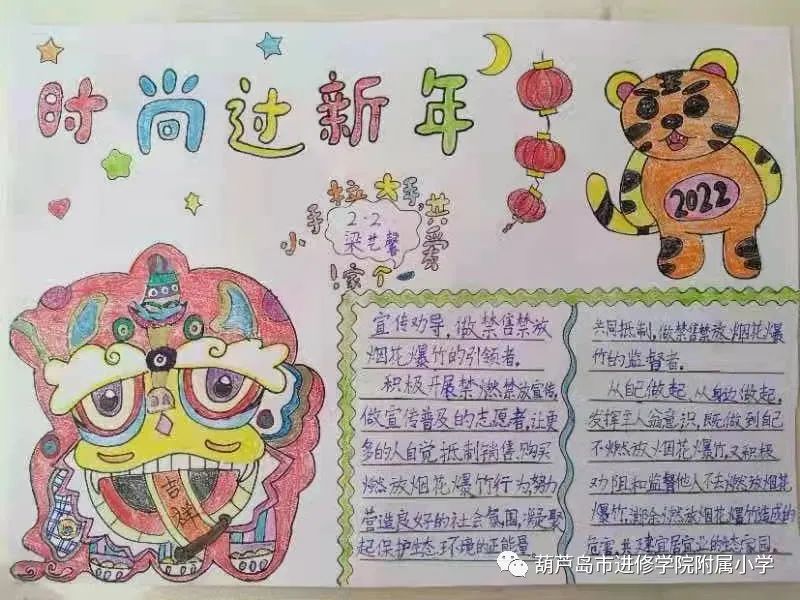 时尚过新年
小手拉大手,共爱一个家!
2.2
梁艺馨
2022
吉祥
宣传劝导,做禁售禁放
烟花爆竹的引领者。
积极开展禁燃禁放宣传,
做宣传普及的志愿者,让更
多的人自觉抵制销售、购买
燃放烟花爆竹行为,努力
营造良好的社会氛围,凝聚
起保护生态环境的正能量
共同抵制,做禁售禁放烟花爆
竹的监督者。
从自己做起,从身边做起,
发挥主人翁意识,既做到自己
不燃放烟花爆竹,又积极
劝阻和监督他人不去燃放烟花
爆竹,消除燃放烟花爆竹造成的
危害,共建宜居宜业的生态家园。
葫芦岛市进修学院附属小学